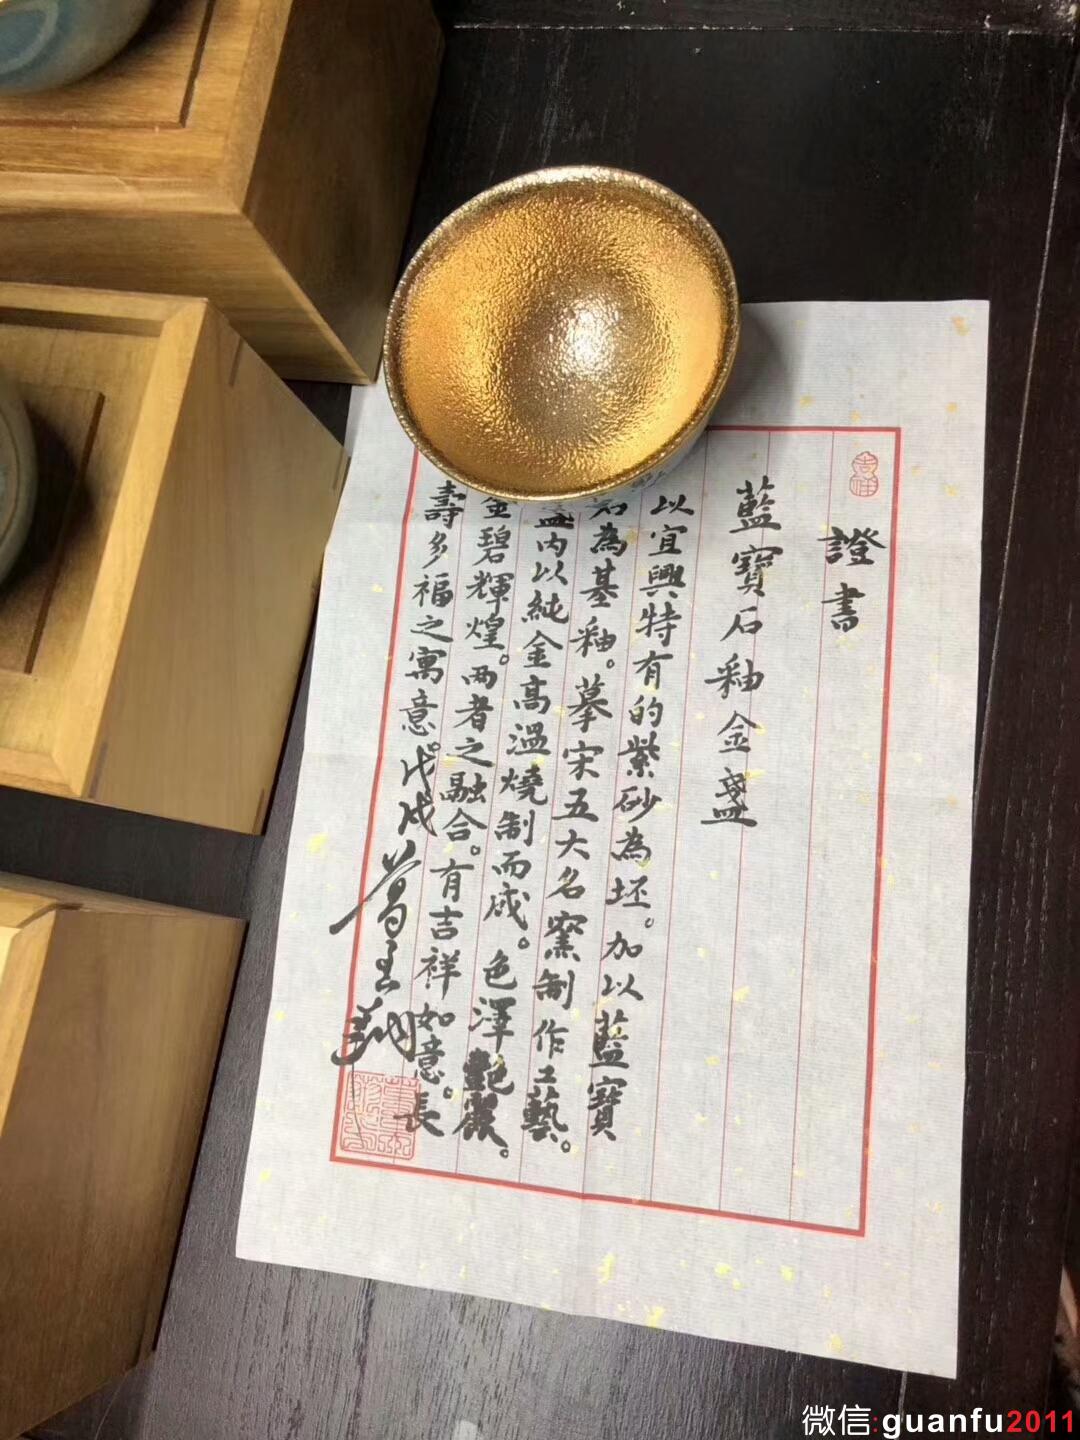 證書
藍寶石釉金盞
以宜興特有的紫砂為坯。加以藍寶
石為基釉。摹宋五大名窯制作工藝。
盞内以純金高温燒制而成。色澤艷麗。
金碧輝煌。两者之融合。有吉祥如意。長
壽多福之寓意。戊戌
吉祥
微信:guanfu2011